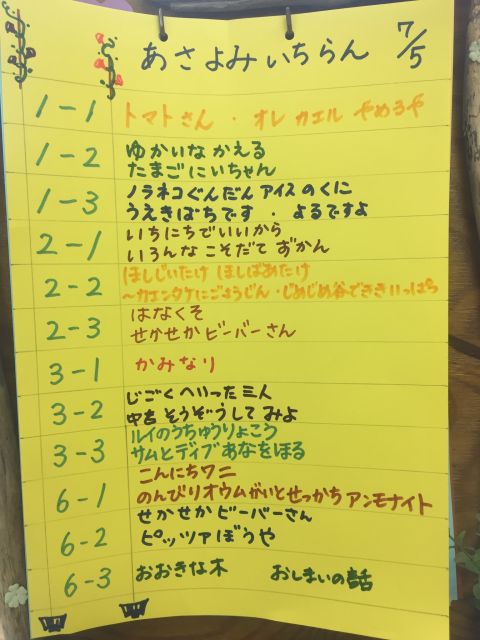 あさよみいちらん 7/5
1-1 トマトさん・オレ カエル やめるや
1-2 ゆかいな かえる
たまごにいちゃん
1-3 ノラネコぐんだん アイスのくに
うえきばちです・よるですよ
2-1 いちにちでいいから
いろんな こそだて ずかん
2-2 ほしじいたけ ほしばあたけ
～カエンタケにごようじん・じめじめ谷でききいっぱつ
2-3 はなくそ
せかせかビーバーさん
3-1 かみなり
3-2 じごくへいった三人
そうぞうしてみよ
3-3 ルイのうちゅうりょこう
サムとデイブあなをほる
6-1 こんにちワニ
のんびりオウムがいとせっかちアンモナイト
6-2 せかせかビーバーさん
ピッツァぼうや
6-3 おおきな木 おしまいの話